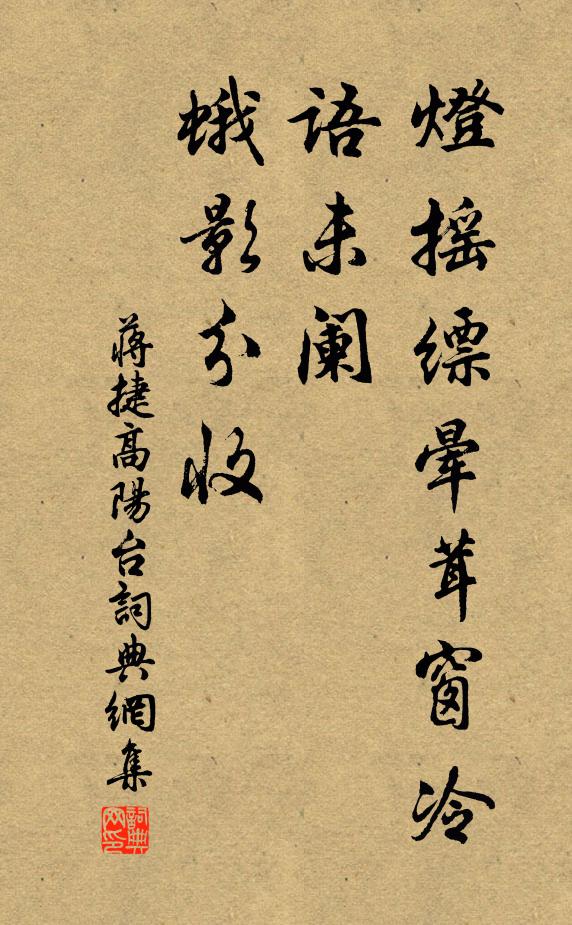 燈摇缥暈茸窗冷
語未阑
蛾影分收
蒋捷高陽台詞典網集
詞典网印